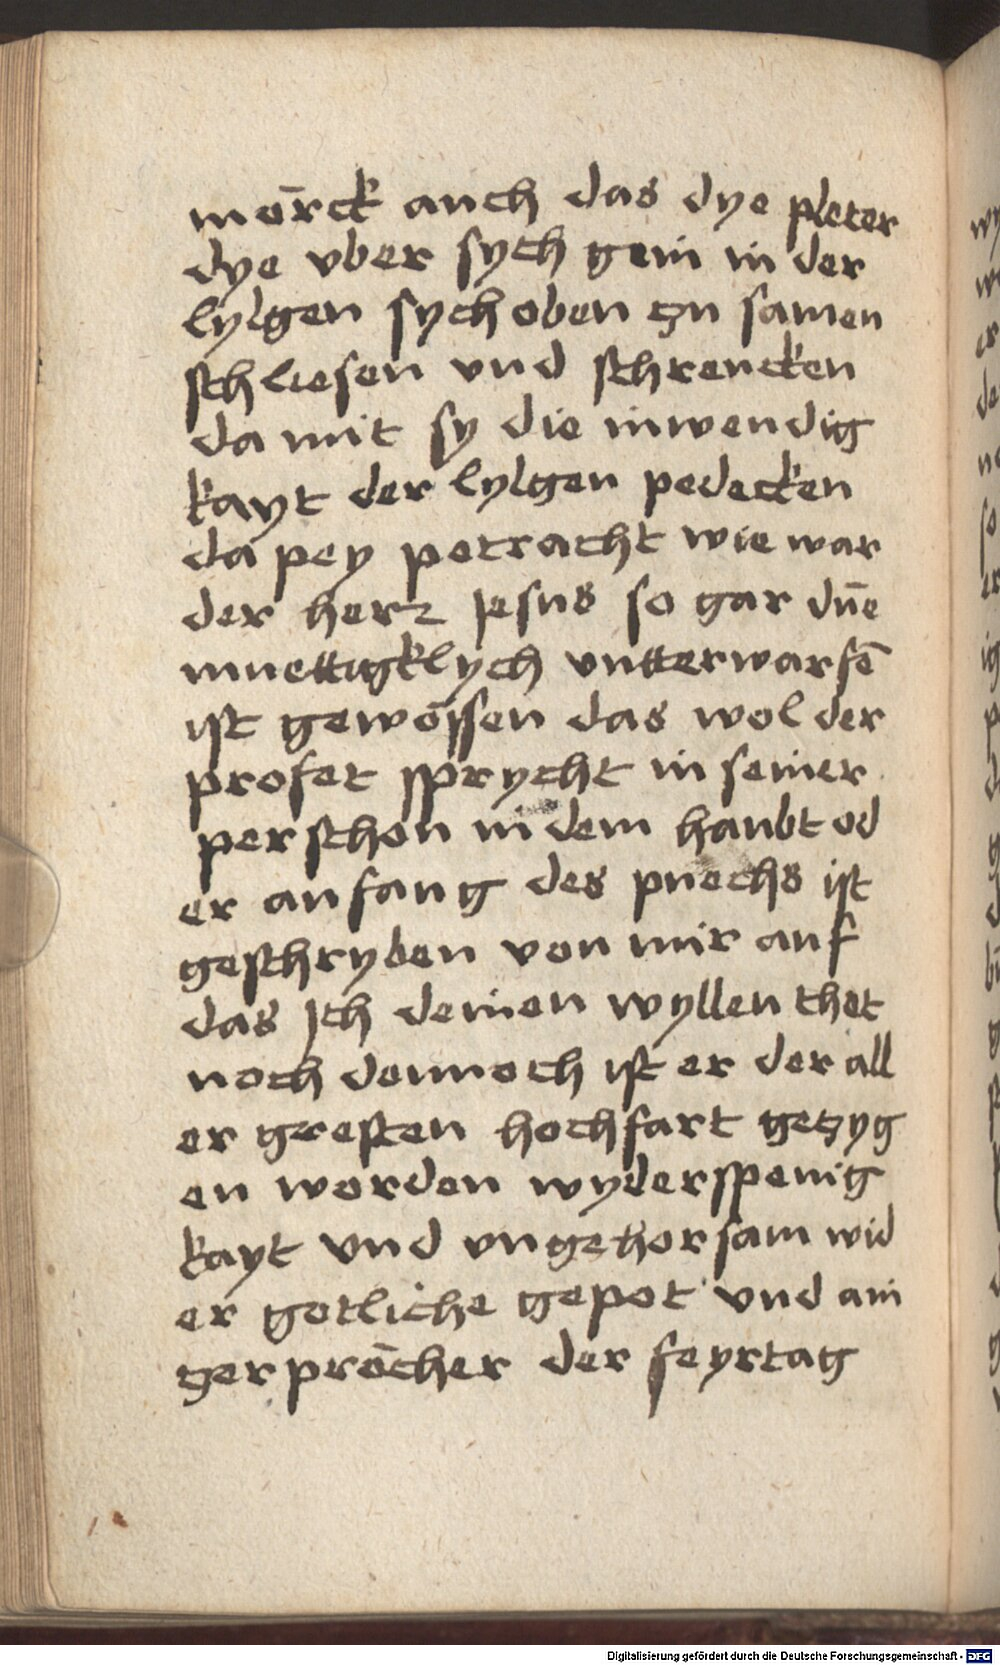 mörck auch das dye pleter
dye vber sych gein in der
lylgen sych oben zu samen
schliesen vnd schrencken
da mit sy die inwendig
kayt der lylgen pedecken
da pey petracht wie war
der herr Jesus so gar dūe
muettigklych vntterwarfē
ist gewössen das wol der
profet sprycht in seiner
perschon in dem haubt od
er anfang des puechs ist
geschryben von mir auf
das Jch deinen wyllen thet
noch dennoch ist er der all
er gresten hochfart getzyg
en worden wyderspenig
kayt vnd vngehorsam wid
er gotliche gepot vnd ain
gerpröcher der feyrtag
Digitalisierung gefördert durch die Deutsche Forschungsgemeinschaft - DFG